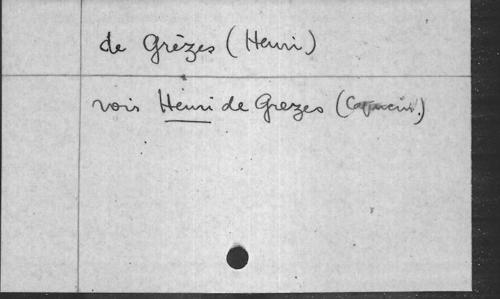 de Grèzes (Henri)
voir Henri de Grezes (Capucin.)